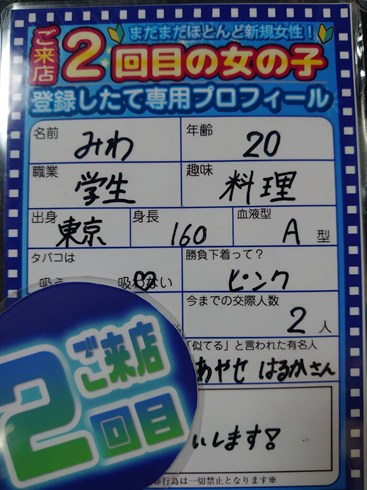 まだまだほとんど新規女性！
ご来店2回目の女の子
登録したて専用プロフィール
名前 みわ 年齢 20
職業 学生 趣味 料理
出身 東京 身長 160 血液型 A 型
タバコは 吸う 吸わない 勝負下着って？ ピンク
今までの交際人数 2 人
「似てる」と言われた有名人
あやせ はるかさん
ご来店
2回目
いします!
行為は一切禁止となります※